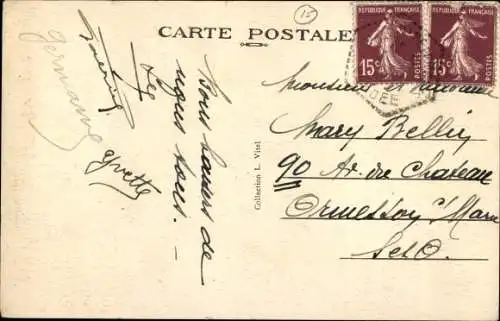 15
CARTE POSTALE
REPUBLIQUE FRANÇAISE
15c
POSTES
REPUBLIQUE FRANÇAISE
15c
POSTES
Germaine
Yvette
Bons baisers de
nous tous. —
Collection L. Vitel
Monsieur et Madame
Mary Bellin
90 Av. du Chateau
Ormesson s/ Marne
S et O.